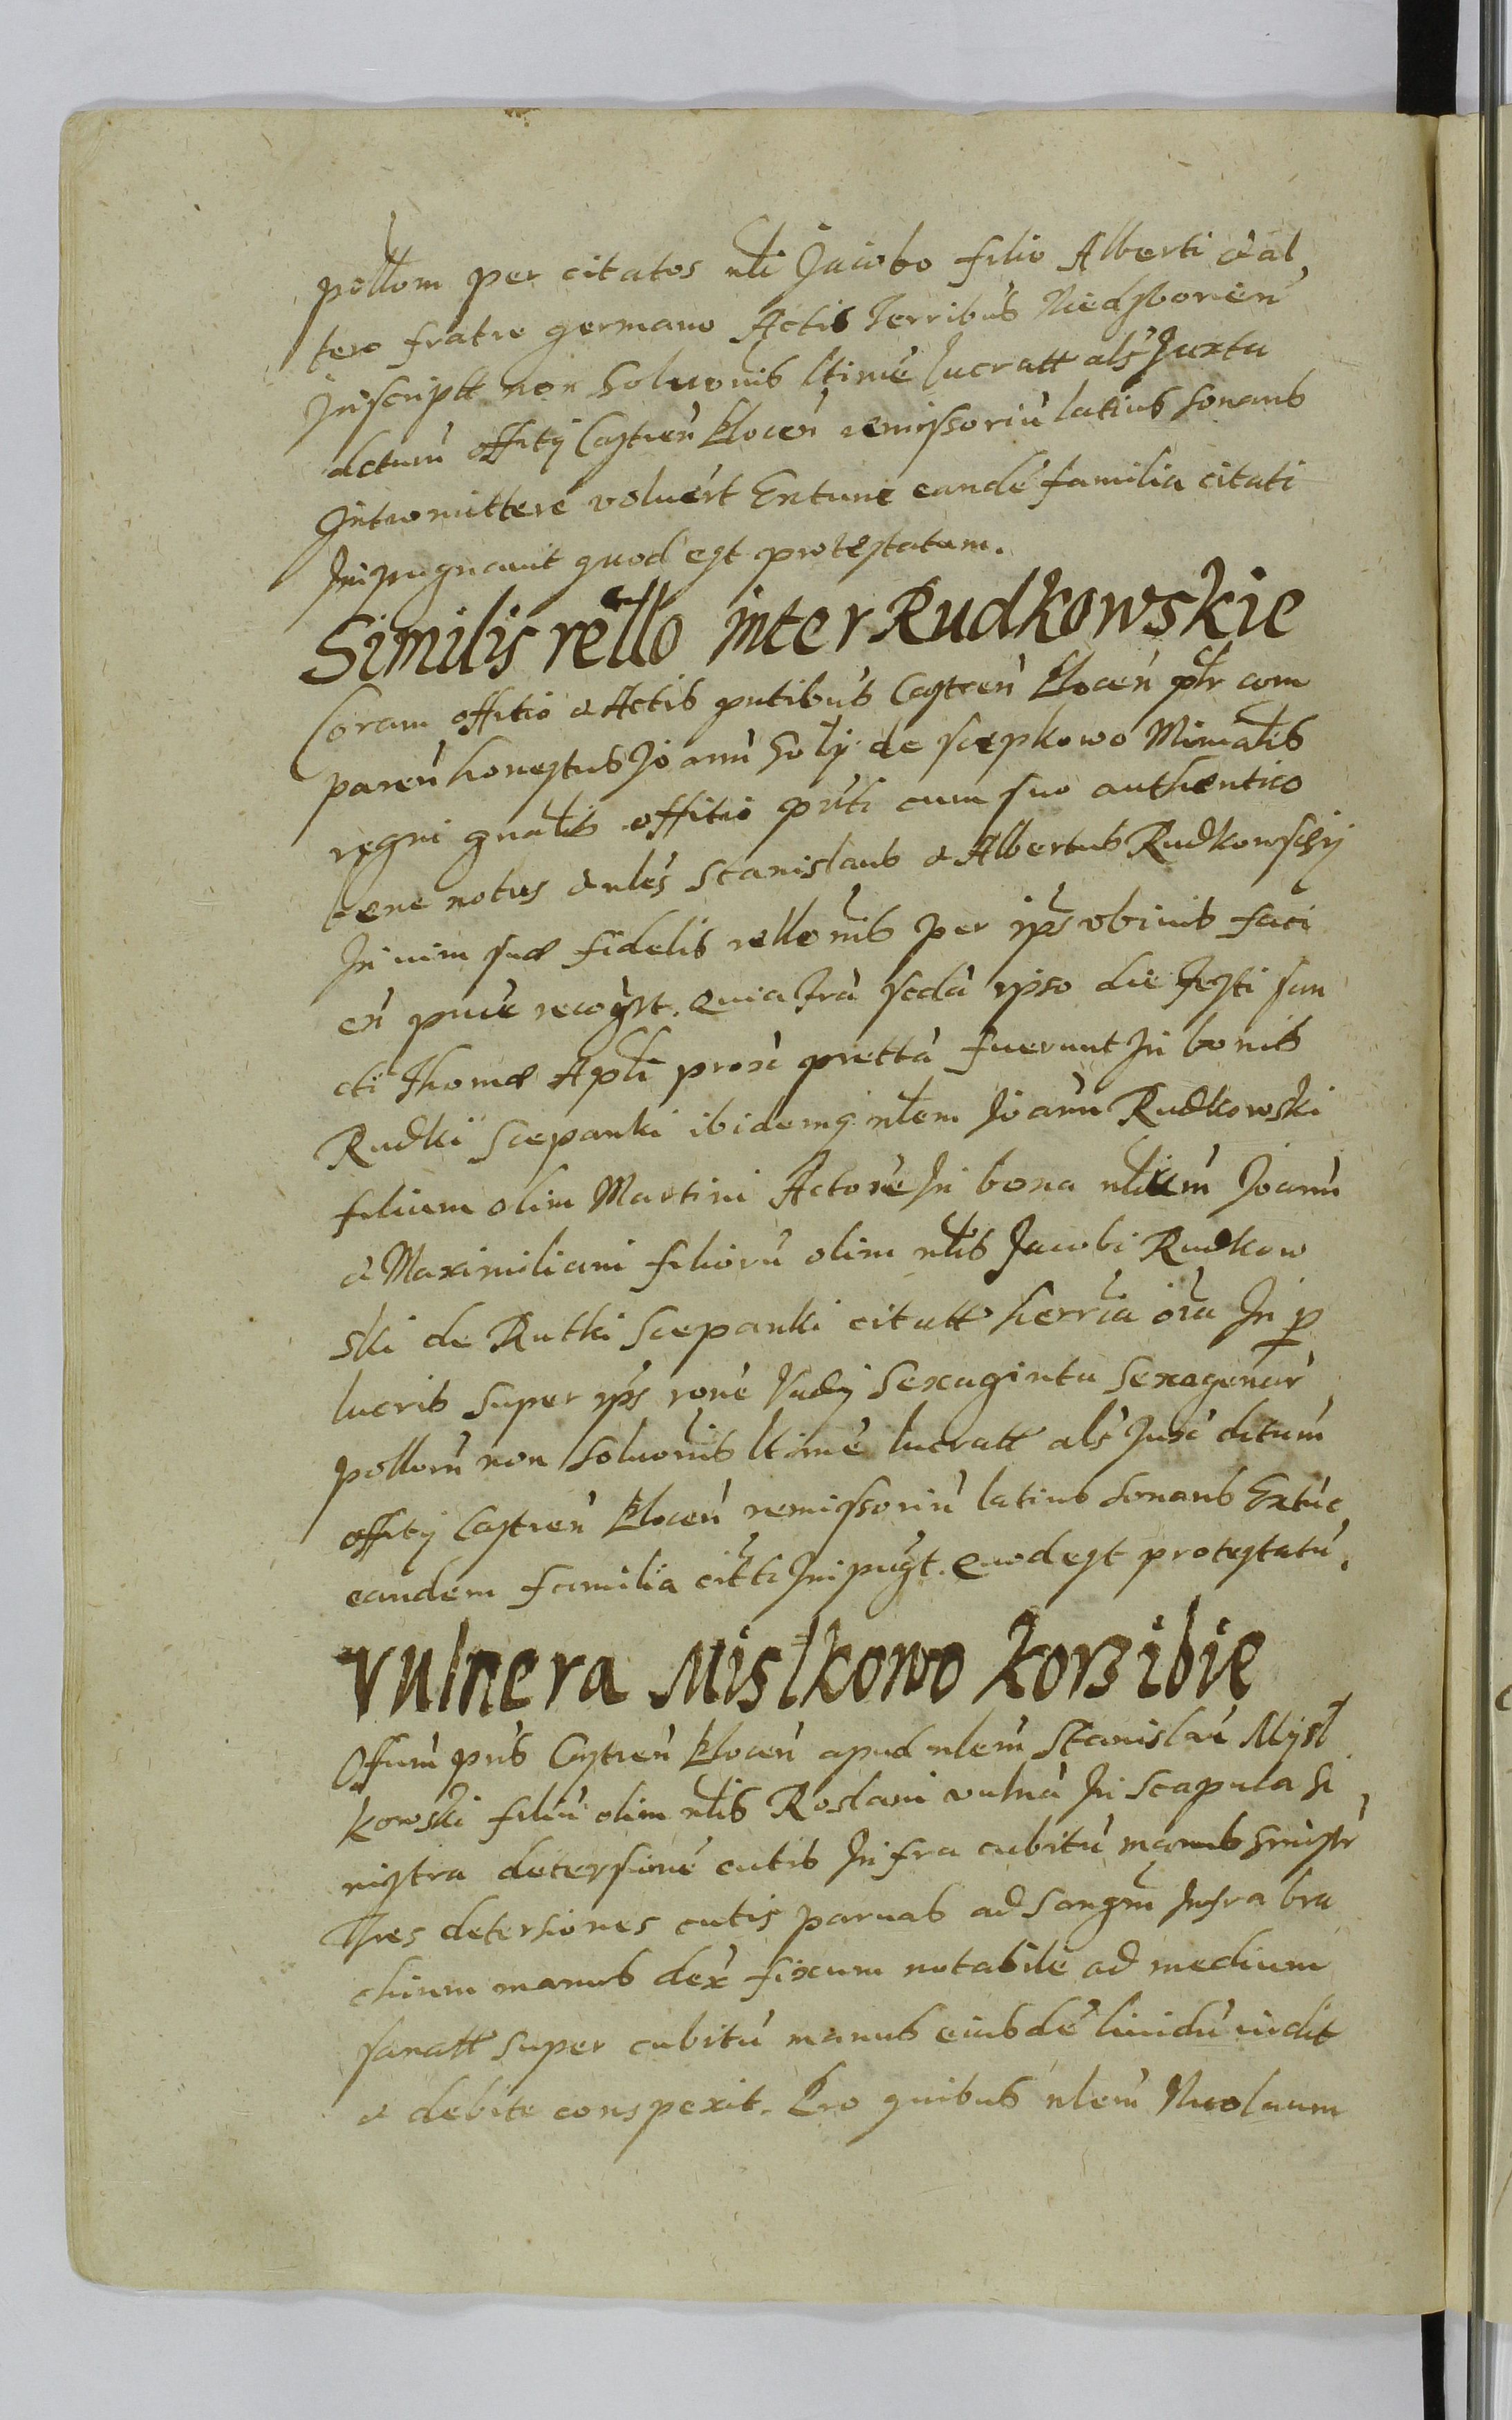 pollom per citatos nli Jacobo filio Alberti et al
tero fratre germano Actis Terribus Niedzborien
Inscriptt non Soluonis ltime lucratt als Juxta
dctum offity Castren Plocen remissoriu latius sonans
Intromittere voluert Extunc eande familia citati
Inpugnarunt quod est protestatum.
Similis rello inter Rudkowskie
Coram offitio et Actis pntibus Castren Plocen plr com
paren honestus Joann Soly de scepkowo Mimalis
regni gnalis offitio pnti cum suo authentico
bene notus et nles Stanislaus et Albertus Rudkowsczy
In vim suæ fidelis rellonis per ips obinis faci
en pnue recogt. Quia fra scda ipso die festi san
cti Thomæ Apli prox prettta fuerunt In bonis
Rudki Scepanki ibidemq nlem Joann Rudkowski
filium olim Martini Actore In bona nlium Joann
et Maximiliani filioru olim nlis Jacobi Rudkow
ski de Rutki Scepanki citatt herria oia In p
lucris super ips rone Vady Sexaginta Sexagenar
pollom non soluonis ltime lucratt als Jux dctum
offity Castren Plocen remissoriu latius sonans Extuc
eandem familia citti Inpugt. Quod est protestatu.
Vulnera Mislkowo korzibie
Offum pns Castren Plocen apud nlem Stanislau Mysl
kowski filiu olim nlis Roslani vulna In scapula si
nistra detersione cutis Infra cubitu manus sinistr
Tres detersiones cutis paruas ad sangm Infra bra
chium manus dex fixum notabile ad medium
sanatt super cubitu manus eiusde liuidu vidit
et debite conspexit. Pro quibus nlem Nicolaum